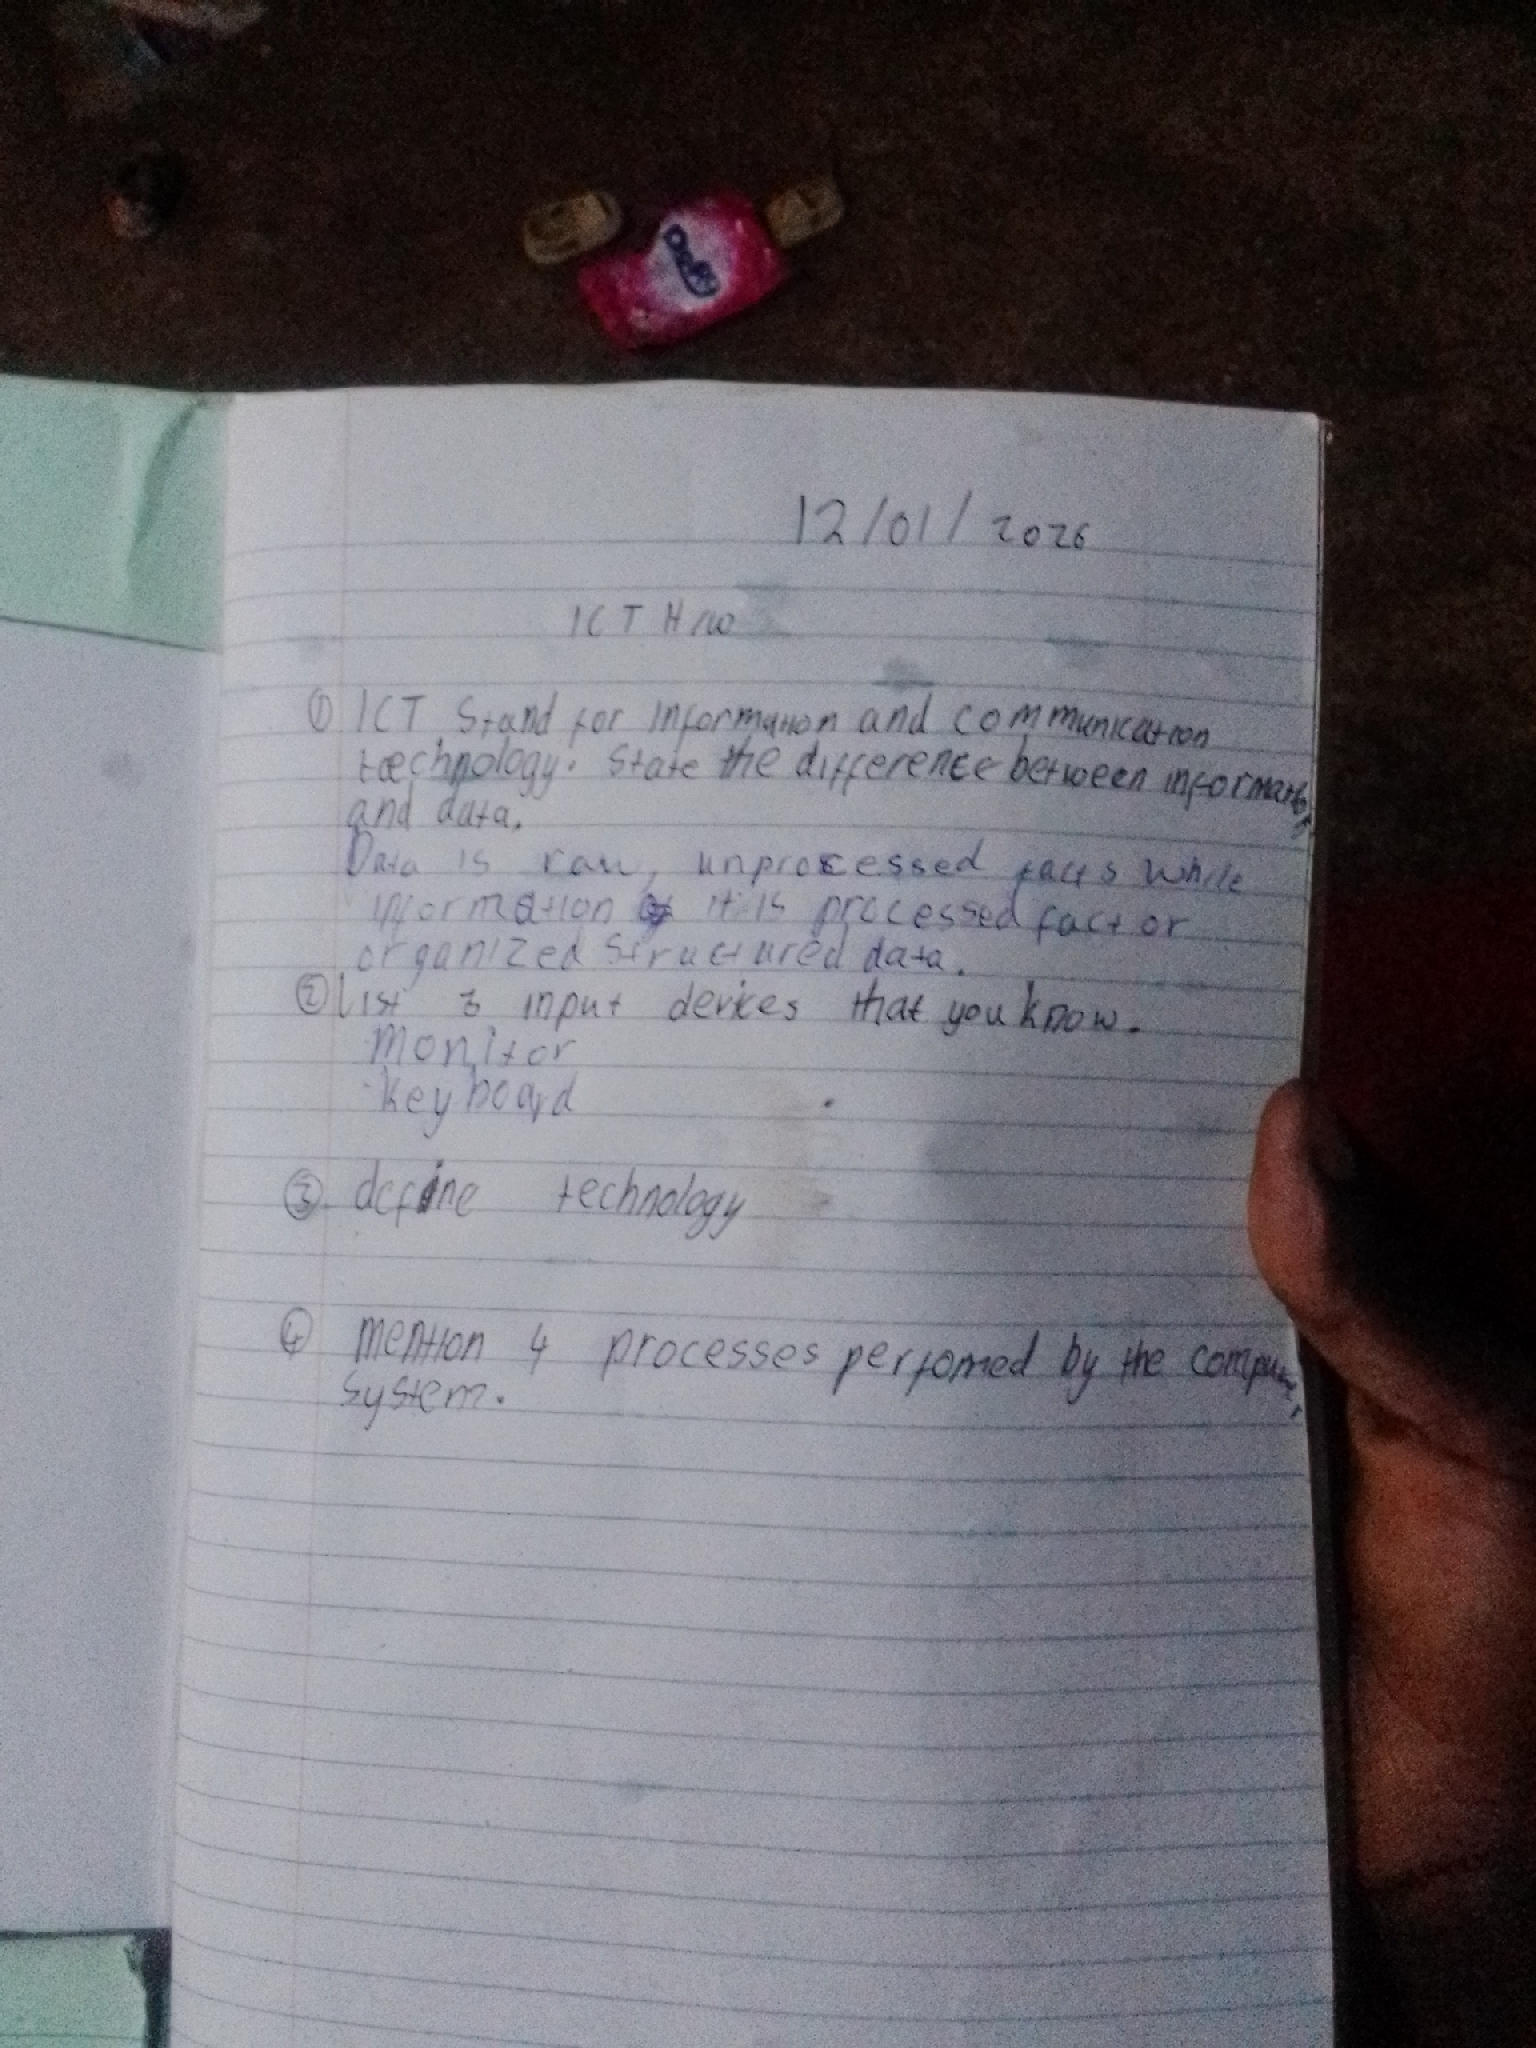 Daffy
12/01/2026
ICT H/W
① ICT Stand for Information and communication
technology. State the difference between information
and data.
Data is raw, unprocessed facts while
information it is processed fact or
organized structured data.
② List 3 input devices that you know.
Monitor
Keyboard
③ define technology
④ Mention 4 processes perfomed by the computer
system.